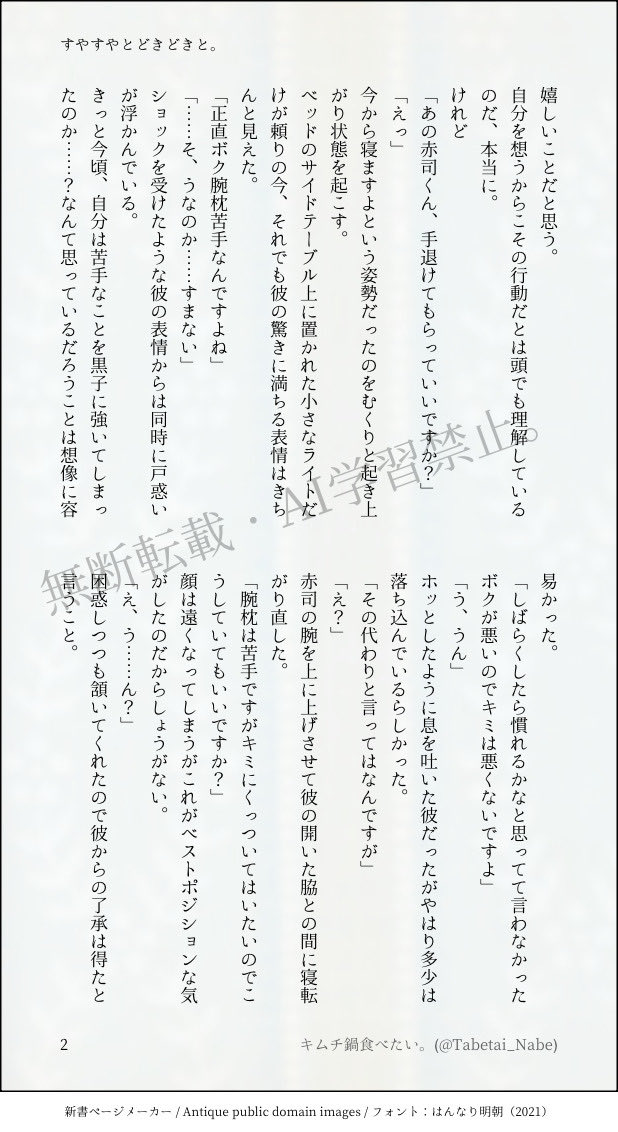 すやすやとどきどきと。
嬉しいことだと思う。
自分を想うからこその行動だとは頭でも理解している
のだ、本当に。
けれど
「あの赤司くん、手退けてもらっていいですか？」
「えっ」
今から寝ますよという姿勢だったのをむくりと起き上
がり状態を起こす。
ベッドのサイドテーブル上に置かれた小さなライトだ
けが頼りの今、それでも彼の驚きに満ちる表情はきち
んと見えた。
「正直ボク腕枕苦手なんですよね」
「……そ、うなのか……すまない」
ショックを受けたような彼の表情からは同時に戸惑い
が浮かんでいる。
きっと今頃、自分は苦手なことを黒子に強いてしまっ
たのか……？なんて思っているだろうことは想像に容
易かった。
「しばらくしたら慣れるかなと思ってて言わなかった
ボクが悪いのでキミは悪くないですよ」
「う、うん」
ホッとしたように息を吐いた彼だったがやはり多少は
落ち込んでいるらしかった。
「その代わりと言ってはなんですが」
「え？」
赤司の腕を上に上げさせて彼の開いた脇との間に寝転
がり直した。
「腕枕は苦手ですがキミにくっついてはいたいのでこ
うしていてもいいですか？」
顔は遠くなってしまうがこれがベストポジションな気
がしたのだからしょうがない。
「え、う……ん？」
困惑しつつも頷いてくれたので彼からの了承は得たと
言うこと。
無断転載・AI学習禁止。
2
キムチ鍋食べたい。(@Tabetai_Nabe)
新書ページメーカー / Antique public domain images / フォント：はんなり明朝（2021）